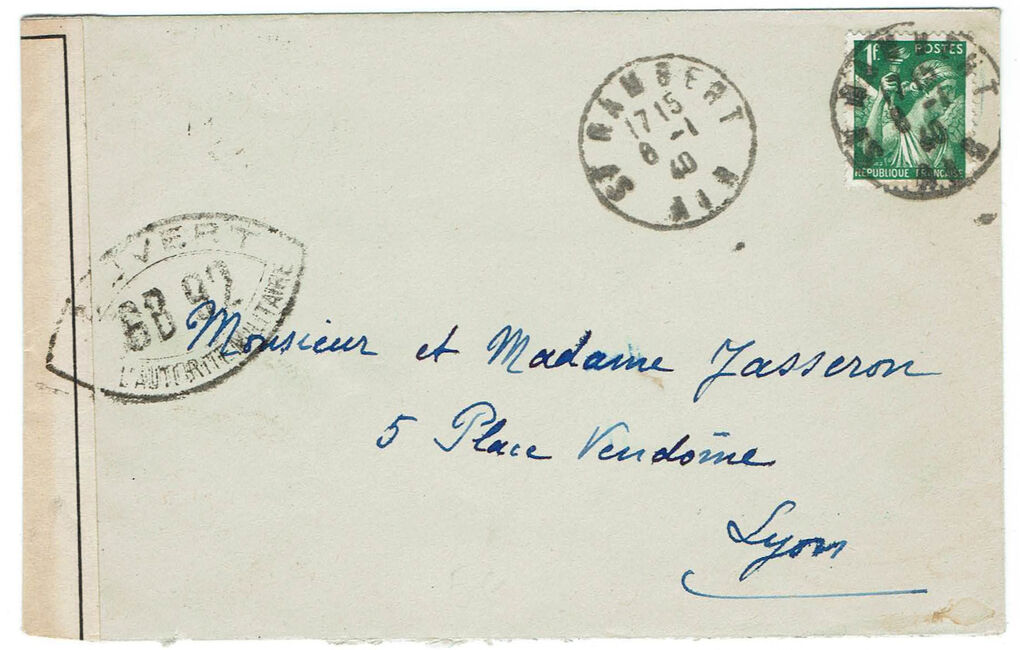 1f. POSTES
RÉPUBLIQUE FRANÇAISE
ST RAMBERT
17 15
8 -1
40
AIN
ST RAMBERT
17 15
8 -1
40
AIN
OUVERT
BB 92
L'AUTORITÉ MILITAIRE
Monsieur et Madame Jasseron
5 Place Vendôme
Lyon